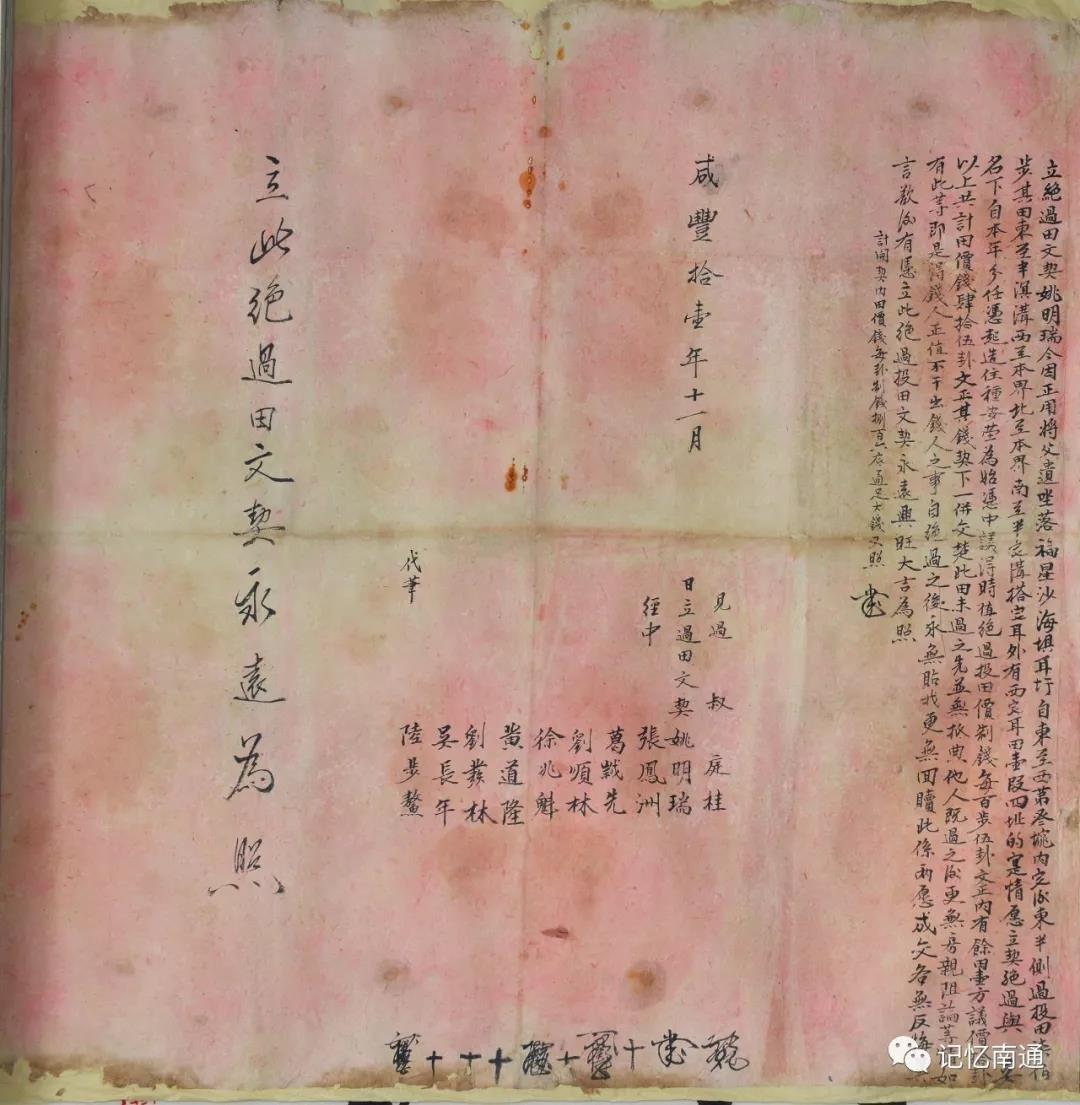 立絕過田文契姚明瑞今因正用將父遺坐落福星沙海壩耳圩自東至西第叁埦內宅後東半側過投田
步其田東至半溟溝西至本界北至本界南至半宅溝搭宅耳外有西宅耳田壹段四址的寔情愿立契絕過與
名下自本年冬任憑起造住種安塋為始憑中議得時值絕過投田價制錢每百步伍卦文正內有餘田壹方議價
以上共計田價錢肆拾伍卦文正其錢契下一併交楚此田未過之先並無抵典他人既過之後更無房親阻論等如
有此等即是得錢人正值不干出錢人之事自絕過之後永無貼找更無回贖此係兩愿成交各無反悔
言欲後有憑立此絕過投田文契永遠興旺大吉為照
計開契內田價錢每卦制錢捌百六底通足大錢又照
咸豐拾壹年十一月
見過 叔 庭桂
日立過田文契 姚明瑞
經中 張鳳洲
葛戩先
劉順林
徐兆魁
黃道隆
劉發林
吳長年
代筆 陸步鰲
立此絕過田文契永遠為照
记忆南通